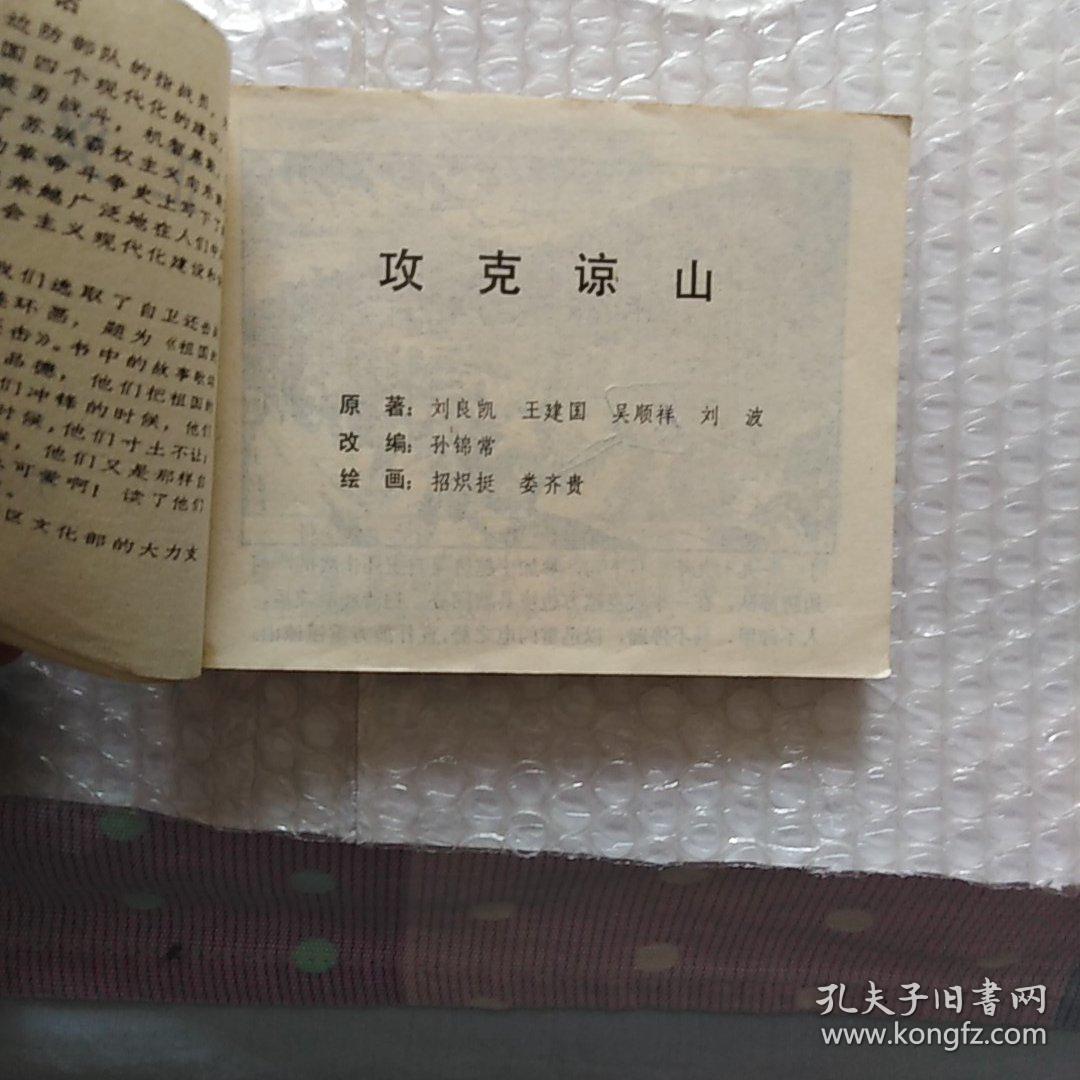 话
边防部队的指战员,
国四个现代化的建设,
英勇战斗,机智果敢
了苏联霸权主义向东
的革命斗争史上写下了
来越广泛地在人们中
会主义现代化建设和
我们选取了自卫还击
连环画,题为《祖国
还击》。书中的故事歌
品德,他们把祖国
们冲锋的时候,他们
时候,他们寸土不让
候,他们又是那样
可爱啊!读了他们
区文化部的大力支
攻克谅山
原 著:刘良凯 王建国 吴顺祥 刘 波
改 编:孙锦常
绘 画:招炽挺 娄齐贵
孔夫子旧书网
www.kongfz.com